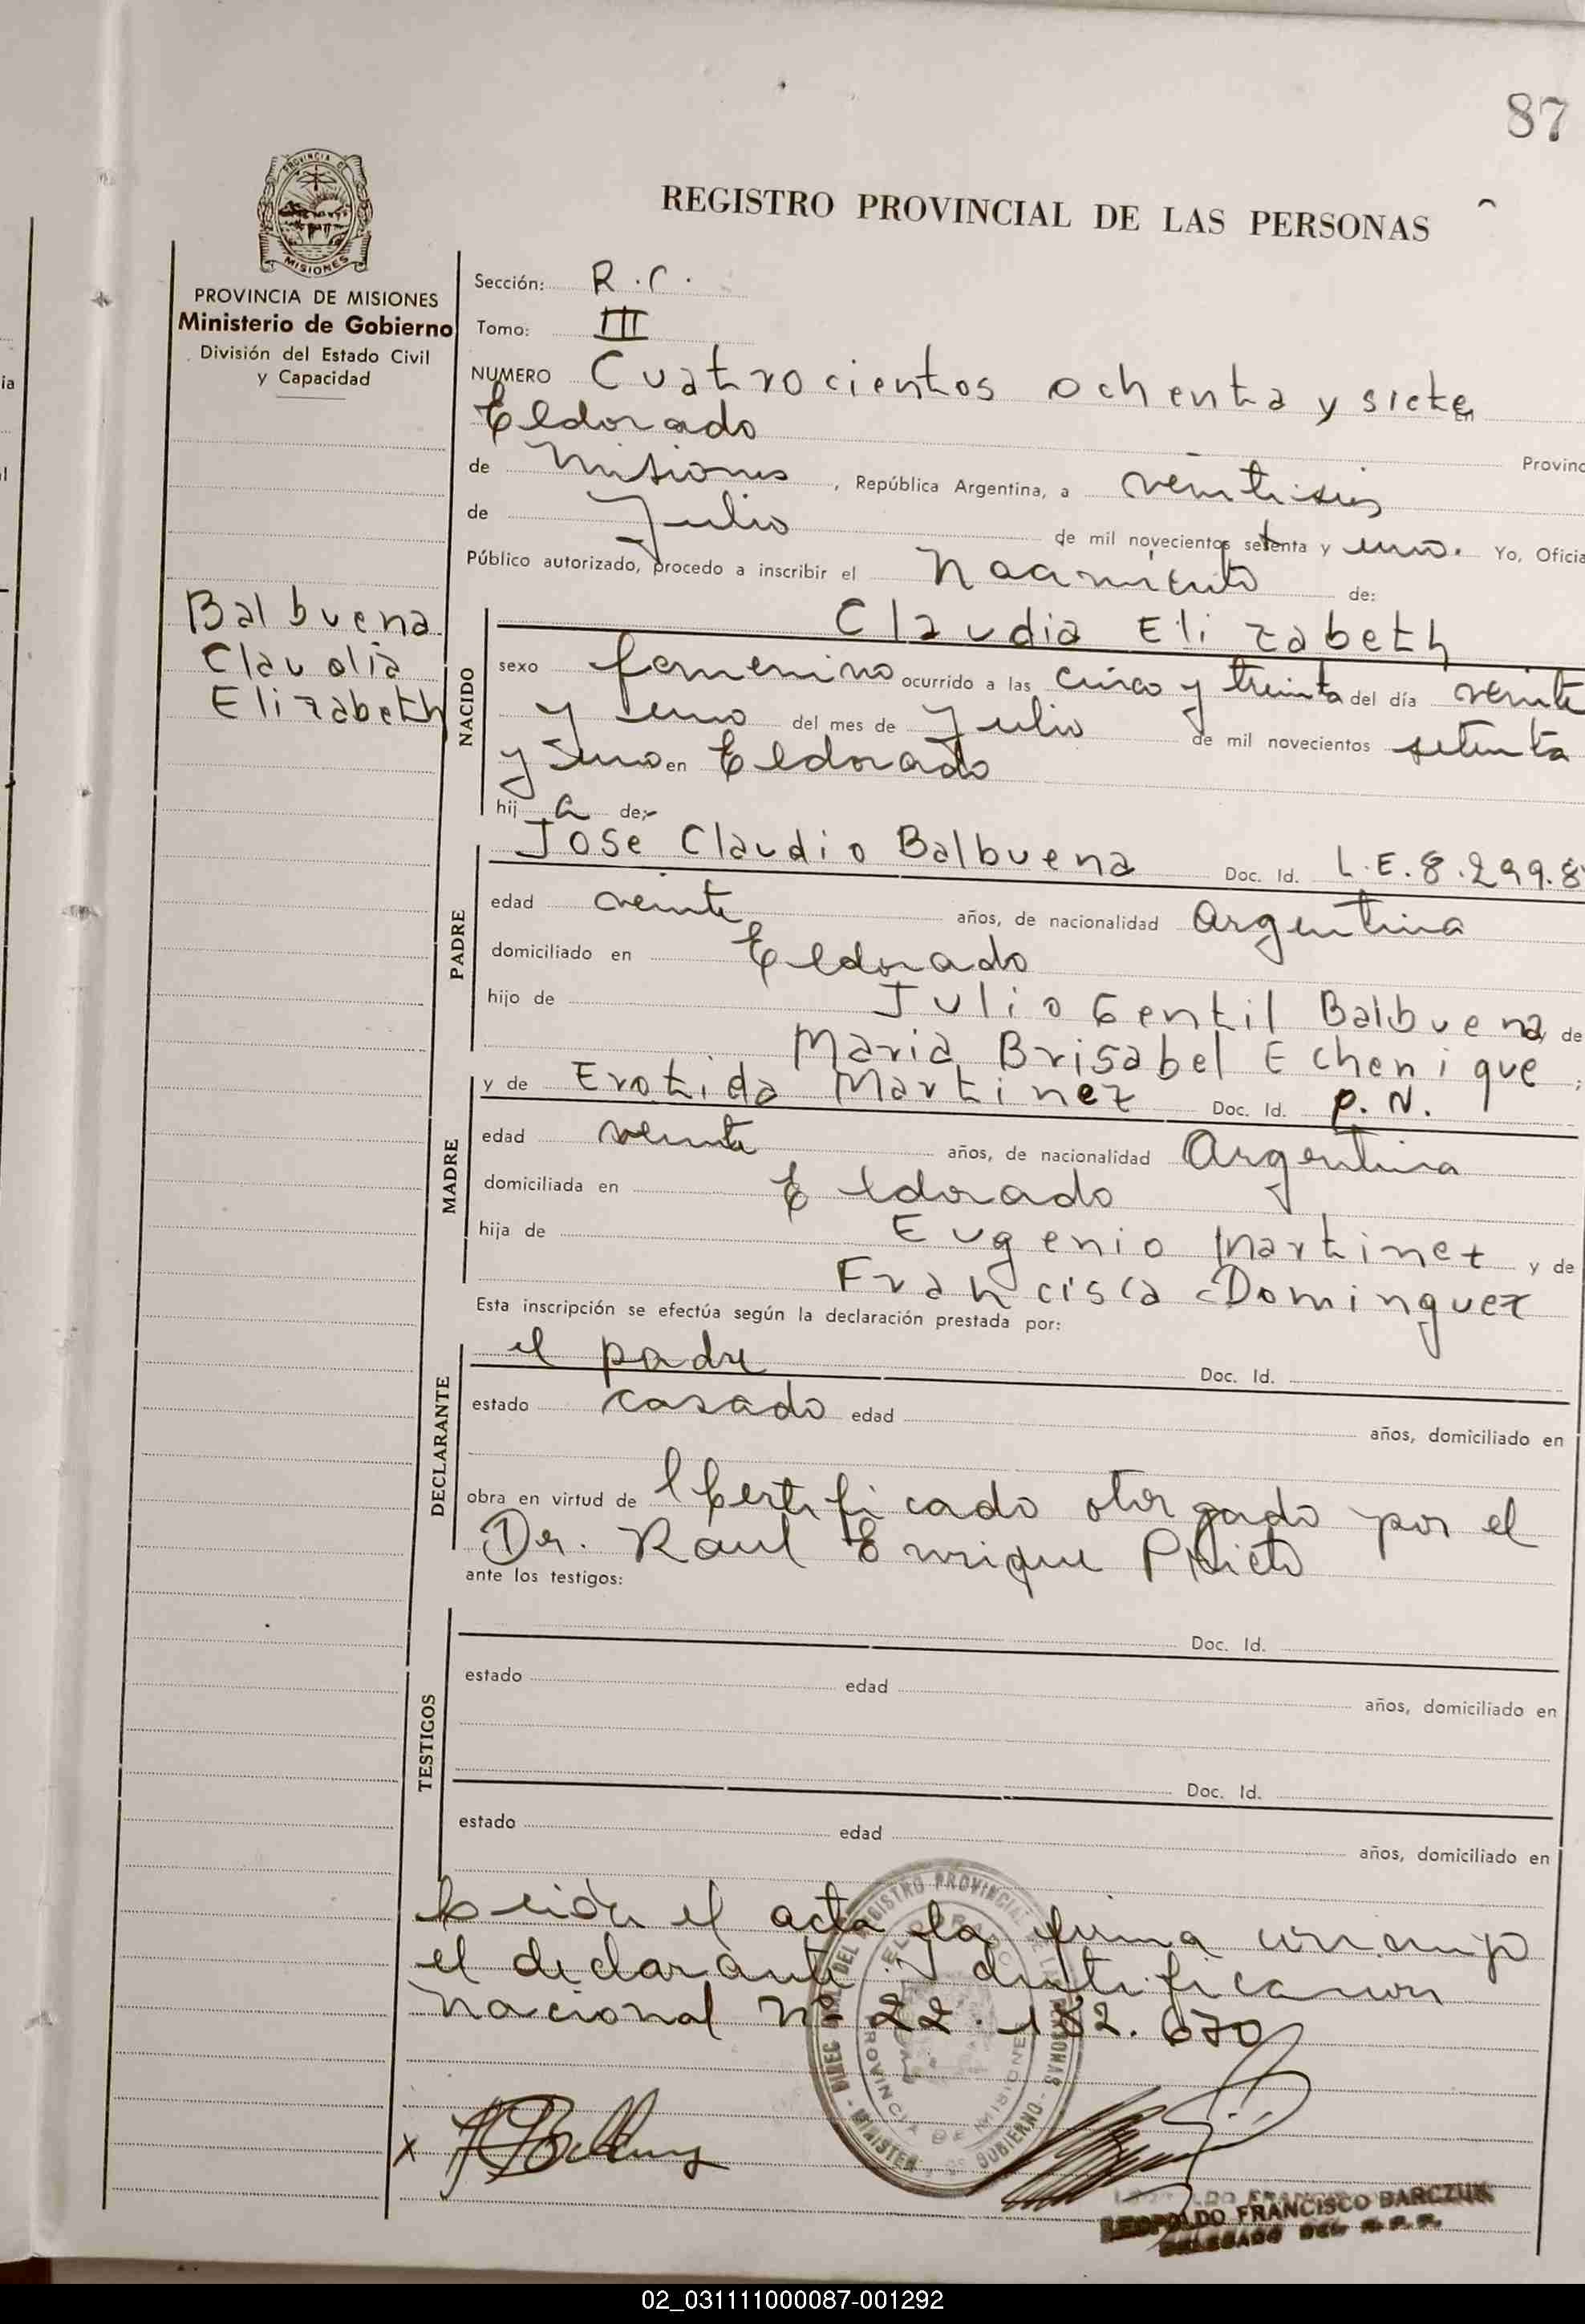 87
REGISTRO PROVINCIAL DE LAS PERSONAS
PROVINCIA DE
MISIONES
PROVINCIA DE MISIONES
Ministerio de Gobierno
División del Estado Civil
y Capacidad
Sección: R.C.
Tomo: III
NUMERO Cuatrocientos ochenta y siete, en
Eldorado Provinc
de Misiones, República Argentina, a veintiseis
de Julio de mil novecientos setenta y uno. Yo, Oficia
Público autorizado, procedo a inscribir el Nacimiento de:
Balbuena
Claudia
Elizabeth
NACIDO
Claudia Elizabeth
sexo femenino ocurrido a las cinco y treinta del día veinte
y uno del mes de Julio de mil novecientos setenta
y uno en Eldorado
hij a de:-
PADRE
José Claudio Balbuena Doc. Id. L.E. 8.299.8
edad veinte años, de nacionalidad Argentina
domiciliado en Eldorado
hijo de Julio Gentil Balbuena, de
Maria Brisabel Echenique ;
MADRE
y de Erotida Martinez Doc. Id. P.N.
edad veinte años, de nacionalidad Argentina
domiciliada en Eldorado
hija de Eugenio Martinez y de
Francisca Dominguez
Esta inscripción se efectúa según la declaración prestada por:
DECLARANTE
el padre Doc. Id.
estado casado edad años, domiciliado en
obra en virtud de Certificado otorgado por el
Dr. Raul Enrique Prieto
ante los testigos:
TESTIGOS
Doc. Id.
estado edad años, domiciliado en
Doc. Id.
estado edad años, domiciliado en
el acta la firma conmigo
el declarante. Identificacion
Nacional Nº 22.182.670
DEL REGISTRO PROVINCIAL DE LAS PERSONAS
ELDORADO
PROVINCIA DE MISIONES
GOBIERNO
LEOPOLDO FRANCISCO BARCZUK
DELEGADO DEL R.P.P.
02_031111000087-001292